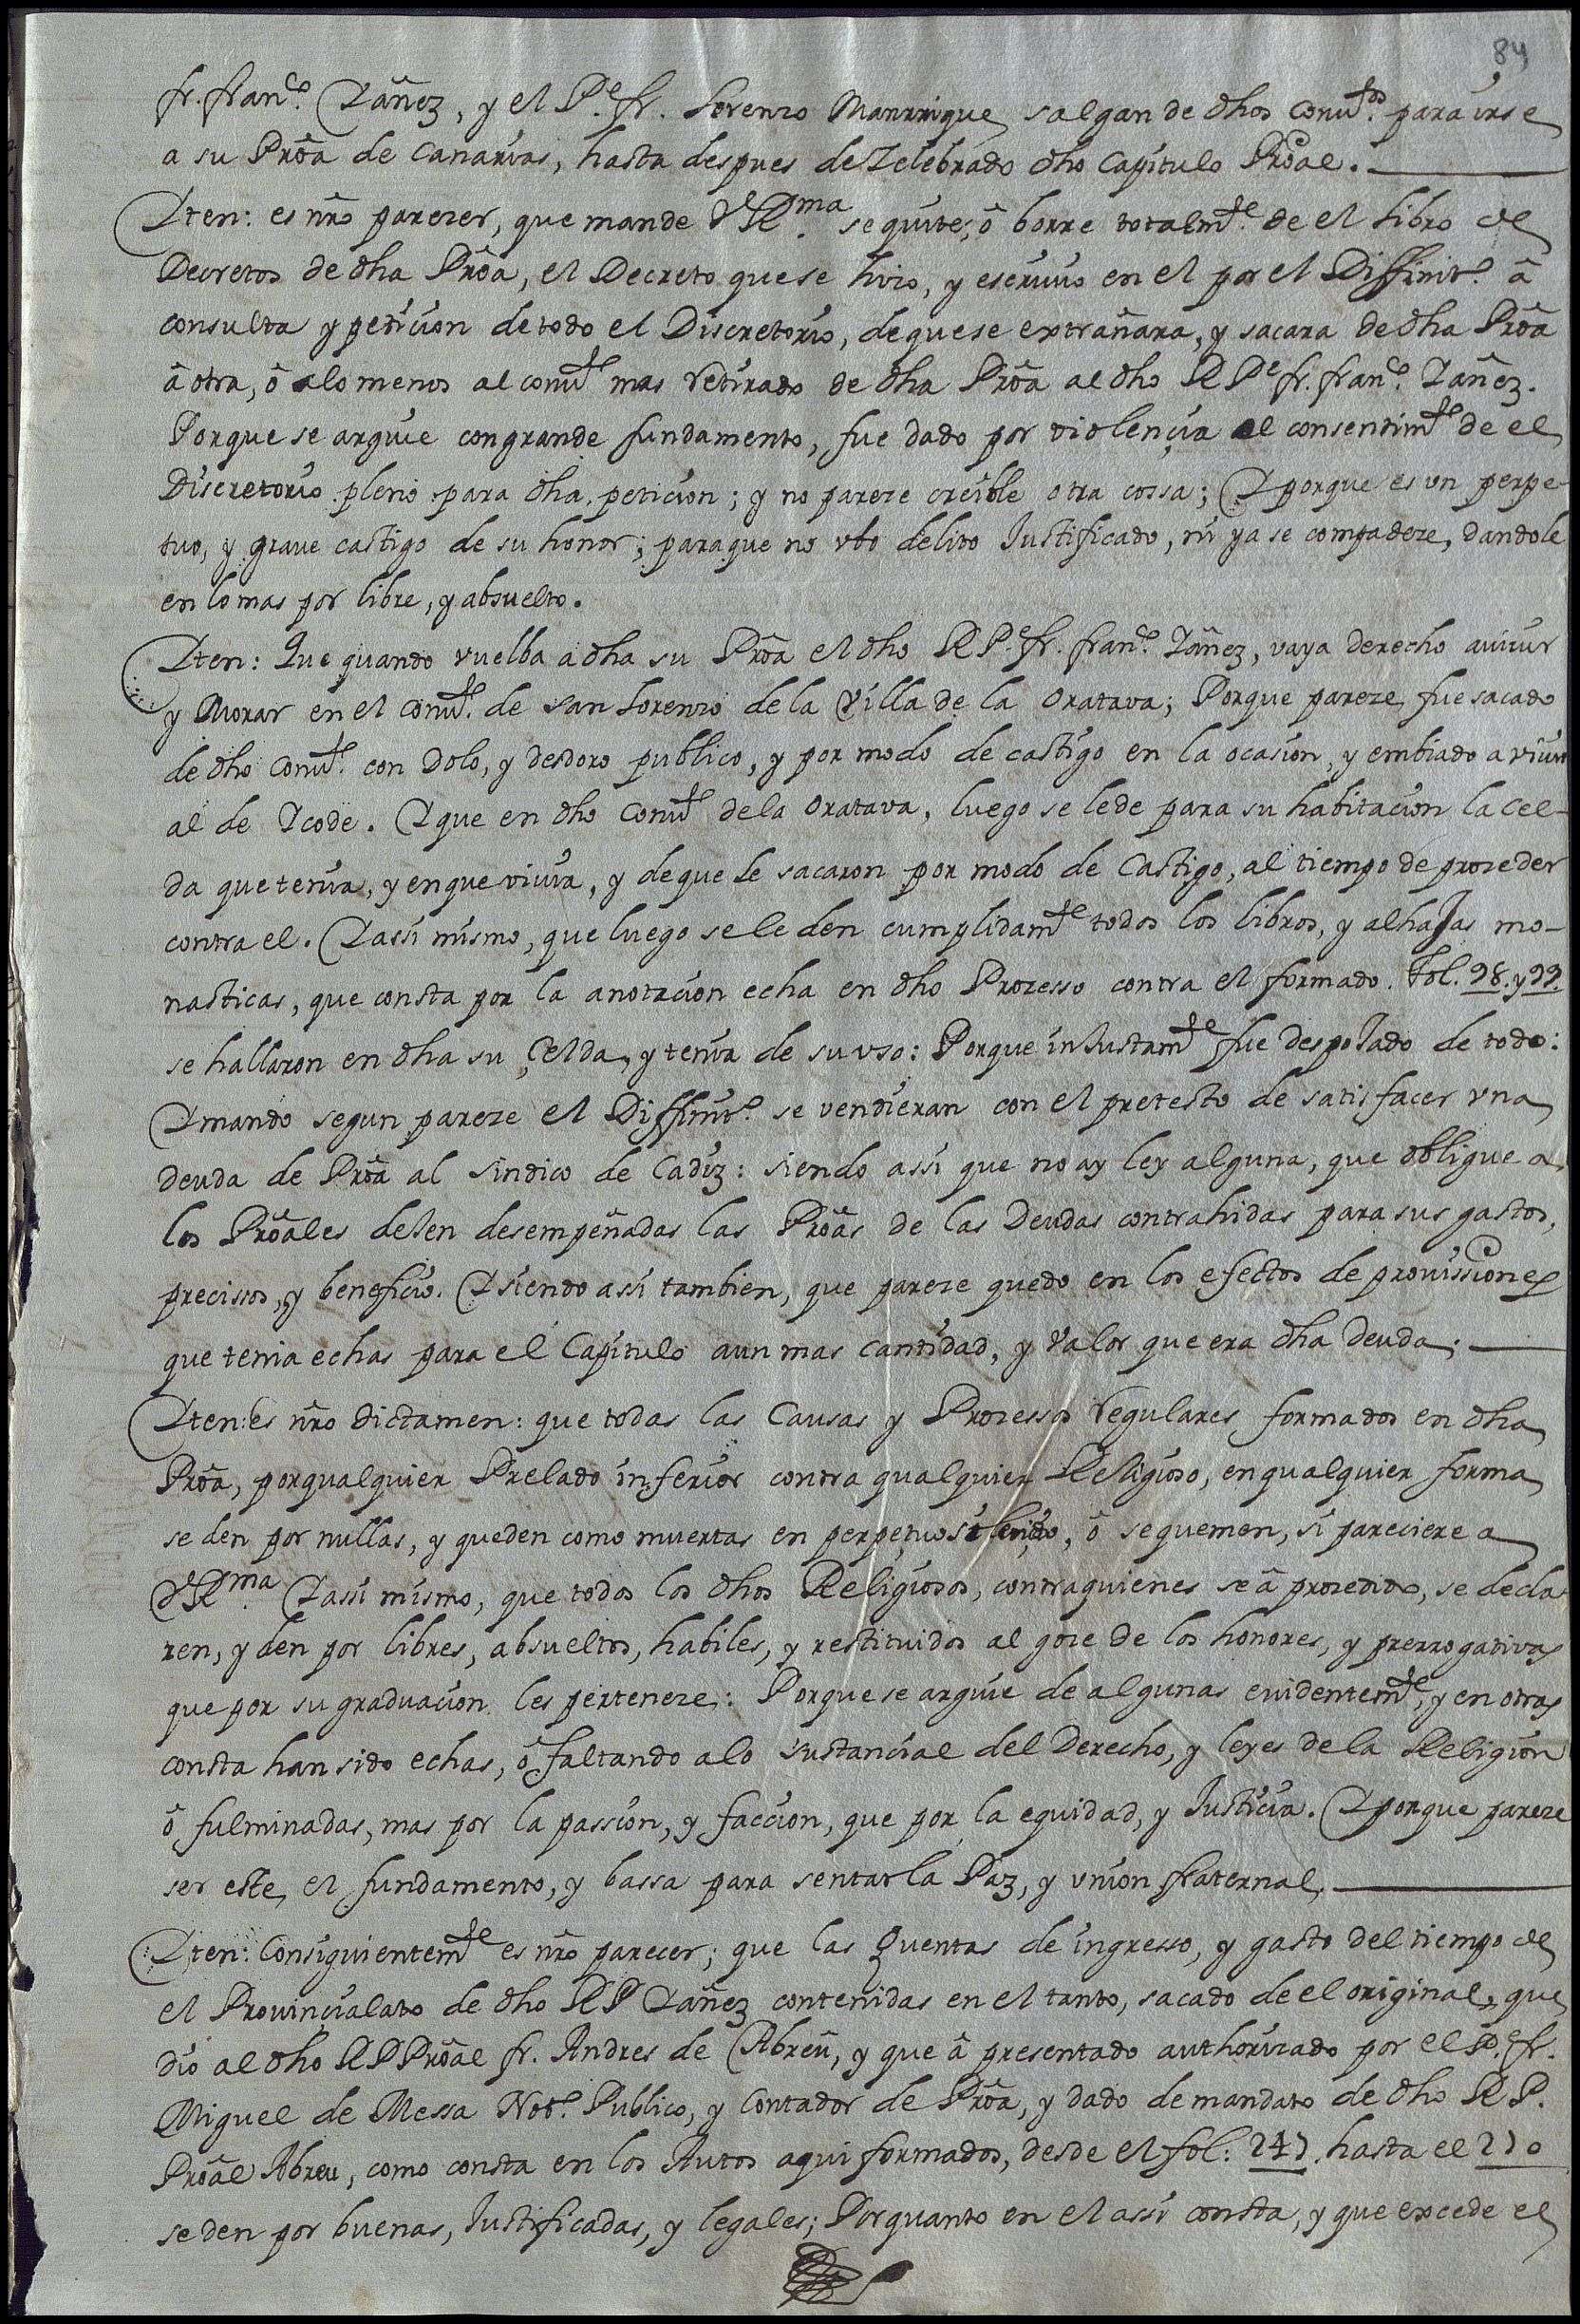 84
fr. franco. Yañez, y el Pe. fr. Lorenzo Manrrique salgan de dhos Conutos. para irse
a su Proa de Canarias, hasta despues de Zelebrado dho Capitulo Proal.
Yten: es nro parezer, que mande V Rma. se quite, ô borre totalmte. de el Libro de
Decretos de dha Proa, el Decreto que se hizo, y escriuio en el por el Diffinito. â
consulta y peticion de todo el Discretorio, de que se extrañara, y sacara de dha Proa
â otra, ô alo menos al conuto mas retirado de dha Proa al dho R Pe fr. franco. Yañez.
Porque se arguie con grande fundamento, fue dado por violencia el consentimto de el
Discretorio pleno para dha peticion; y no pareze creible otra cossa; Y porque es un perpe-
tuo, y graue castigo de su honor; para que no vbo delito Justificado, ni ya se compadeze, dandole
en lo mas por libre, y absuelto.
Yten: Que quando vuelba a dha su Proa el dho R Pe. fr. franco. Yañez, vaya derecho a uiuir
y Morar en el Conuto. de San Lorenzo de la Villa de la Oratava; Porque pareze fue sacado
de dho Conuto. con dolo, y desdoro publico, y por modo de castigo en la ocasion, y embiado a viuir
al de Icode. Y que en dho Conuto dela Oratava, luego se le de para su habitacion la Cel-
da que tenia, y en que viuia, y de que le sacaron por modo de Castigo, al tiempo de prozeder
contra el. Y assi mismo, que luego se le den cumplidamte todos los libros, y alhaJas mo-
nasticas, que consta por la anotacion echa en dho Prozesso contra el formado. Fol. 98. y 99.
se hallaron en dha su Çelda, y tenia de su vso: Porque inJustamte fue despoJado de todo:
Y mando segun pareze el Diffinito. se vendieran con el pretesto de satisfacer vna
deuda de Proa al sindico de Cadiz: siendo assi que no ay ley alguna, que obligue a
los Proales deJen desempeñadas las Proas de las Deudas contrahidas para sus gastos,
precissos, y beneficio. Y siendo assi tambien, que pareze quedo en los efectos de prouissiones
que tenia echas para el Capitulo aun mas cantidad, y valor que era dha Deuda.
Yten: es nro dictamen: que todas las Causas y Prozessos regulares formados en dha
Proa, por qualquier Prelado inferior contra qualquier Religioso, en qualquier forma
se den por nullas, y queden como muertas en perpetuo silencio, ô se quemen, si pareciere a
V Rma. Y assi mismo, que todos los dhos Religiosos, contra quienes se â prozedido, se decla-
ren, y den por libres, absueltos, habiles, y restituidos al goze de los honores, y prerrogativas
que por su graduacion les perteneze: Porque se arguie de algunas euidentemte, y en otras
consta han sido echas, ô faltando a lo sustancial del Derecho, y leyes de la Religion
ô fulminadas, mas por la passion, y faccion, que por la equidad, y Justicia. Y porque pareze
ser este el fundamento, y bassa para sentar la Paz, y vnion fraternal.
Yten: Consiguientemte es nro parecer; que las quentas de ingresso, y gasto del tiempo de
el Prouincialato de dho R P Yañez contenidas en el tanto, sacado de el original, que
dio al dho R P Proal fr. Andres de Abreu, y que â presentado authorizado por el Pe. fr.
Miguel de Messa Noto. Publico, y Contador de Proa, y dado de mandato de dho R P.
Proal Abreu, como consta en los Autos aqui formados, desde el fol: 245. hasta el 250
se den por buenas, Justificadas, y legales; Porquanto en el assi consta, y que excede el